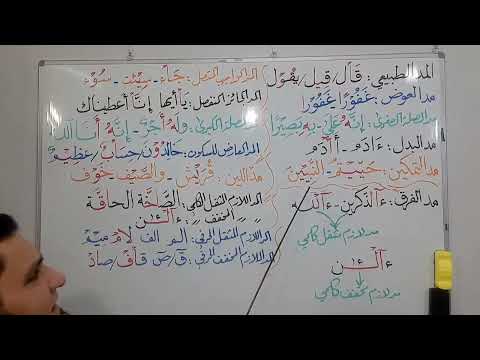 المد الطبيعي: قَالَ / قِيلَ / يَقُولُ
مد العوض: غَفُورًا غَفُورَا
مد الصلة الصغرى: إِنَّهُ عَلَىٰ - بِهِ بَصِيرًا
مد البدل: ءَادَم - أَأْدَم
مد التمكين: حُيِّيتُم - النَّبِيِّينَ
مد الفرق: ءَآلذَّكَرَيْنِ - ءَآللَّه
مد لازم مثقل كلمي
ءَآلْـٰٔنَ
مد لازم مخفف كلمي
المد الواجب المتصل: جَآءَ - سِيٓئَت - سُوٓء
المد الجائز المنفصل: يَا أيها إِنَّا أعطيناك
مد الصلة الكبرى: وَلَهُ أَجْرٌ - إِنَّهُ أَنَا اللَّه
المد العارض للسكون: خالدُون / حِسَاب / عَظِيم
مد اللين: قُرَيْش - والصَّيْف خَوْف
المد اللازم المثقل الكلمي: الصَّاخَّة الحاقَّة
〃 〃 المخفف 〃: ءَآلْـٰٔنَ
المد اللازم المثقل الحرفي: الم الف لام ميم
المد اللازم المخفف الحرفي: ق ص قاف / صاد